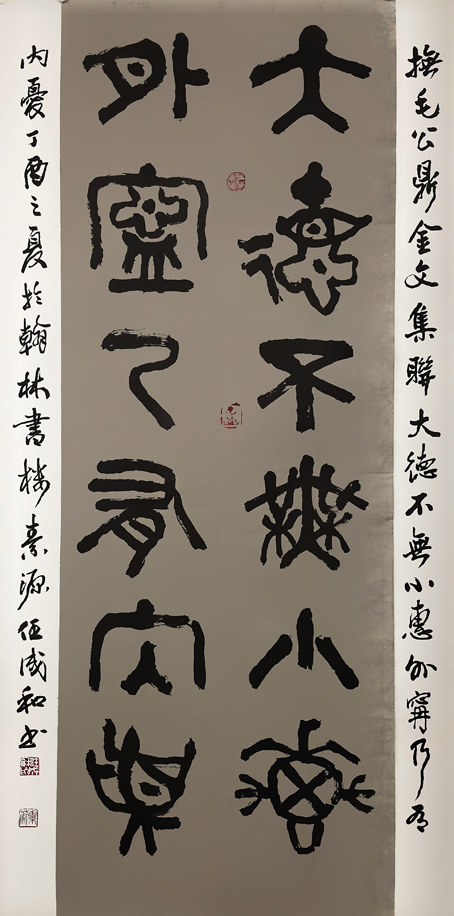 撫毛公鼎金文集聯大德不無小惠外寧乃有
大德不無小惠
外寧乃有內憂
内憂丁酉之夏於翰林書樓源伍和书